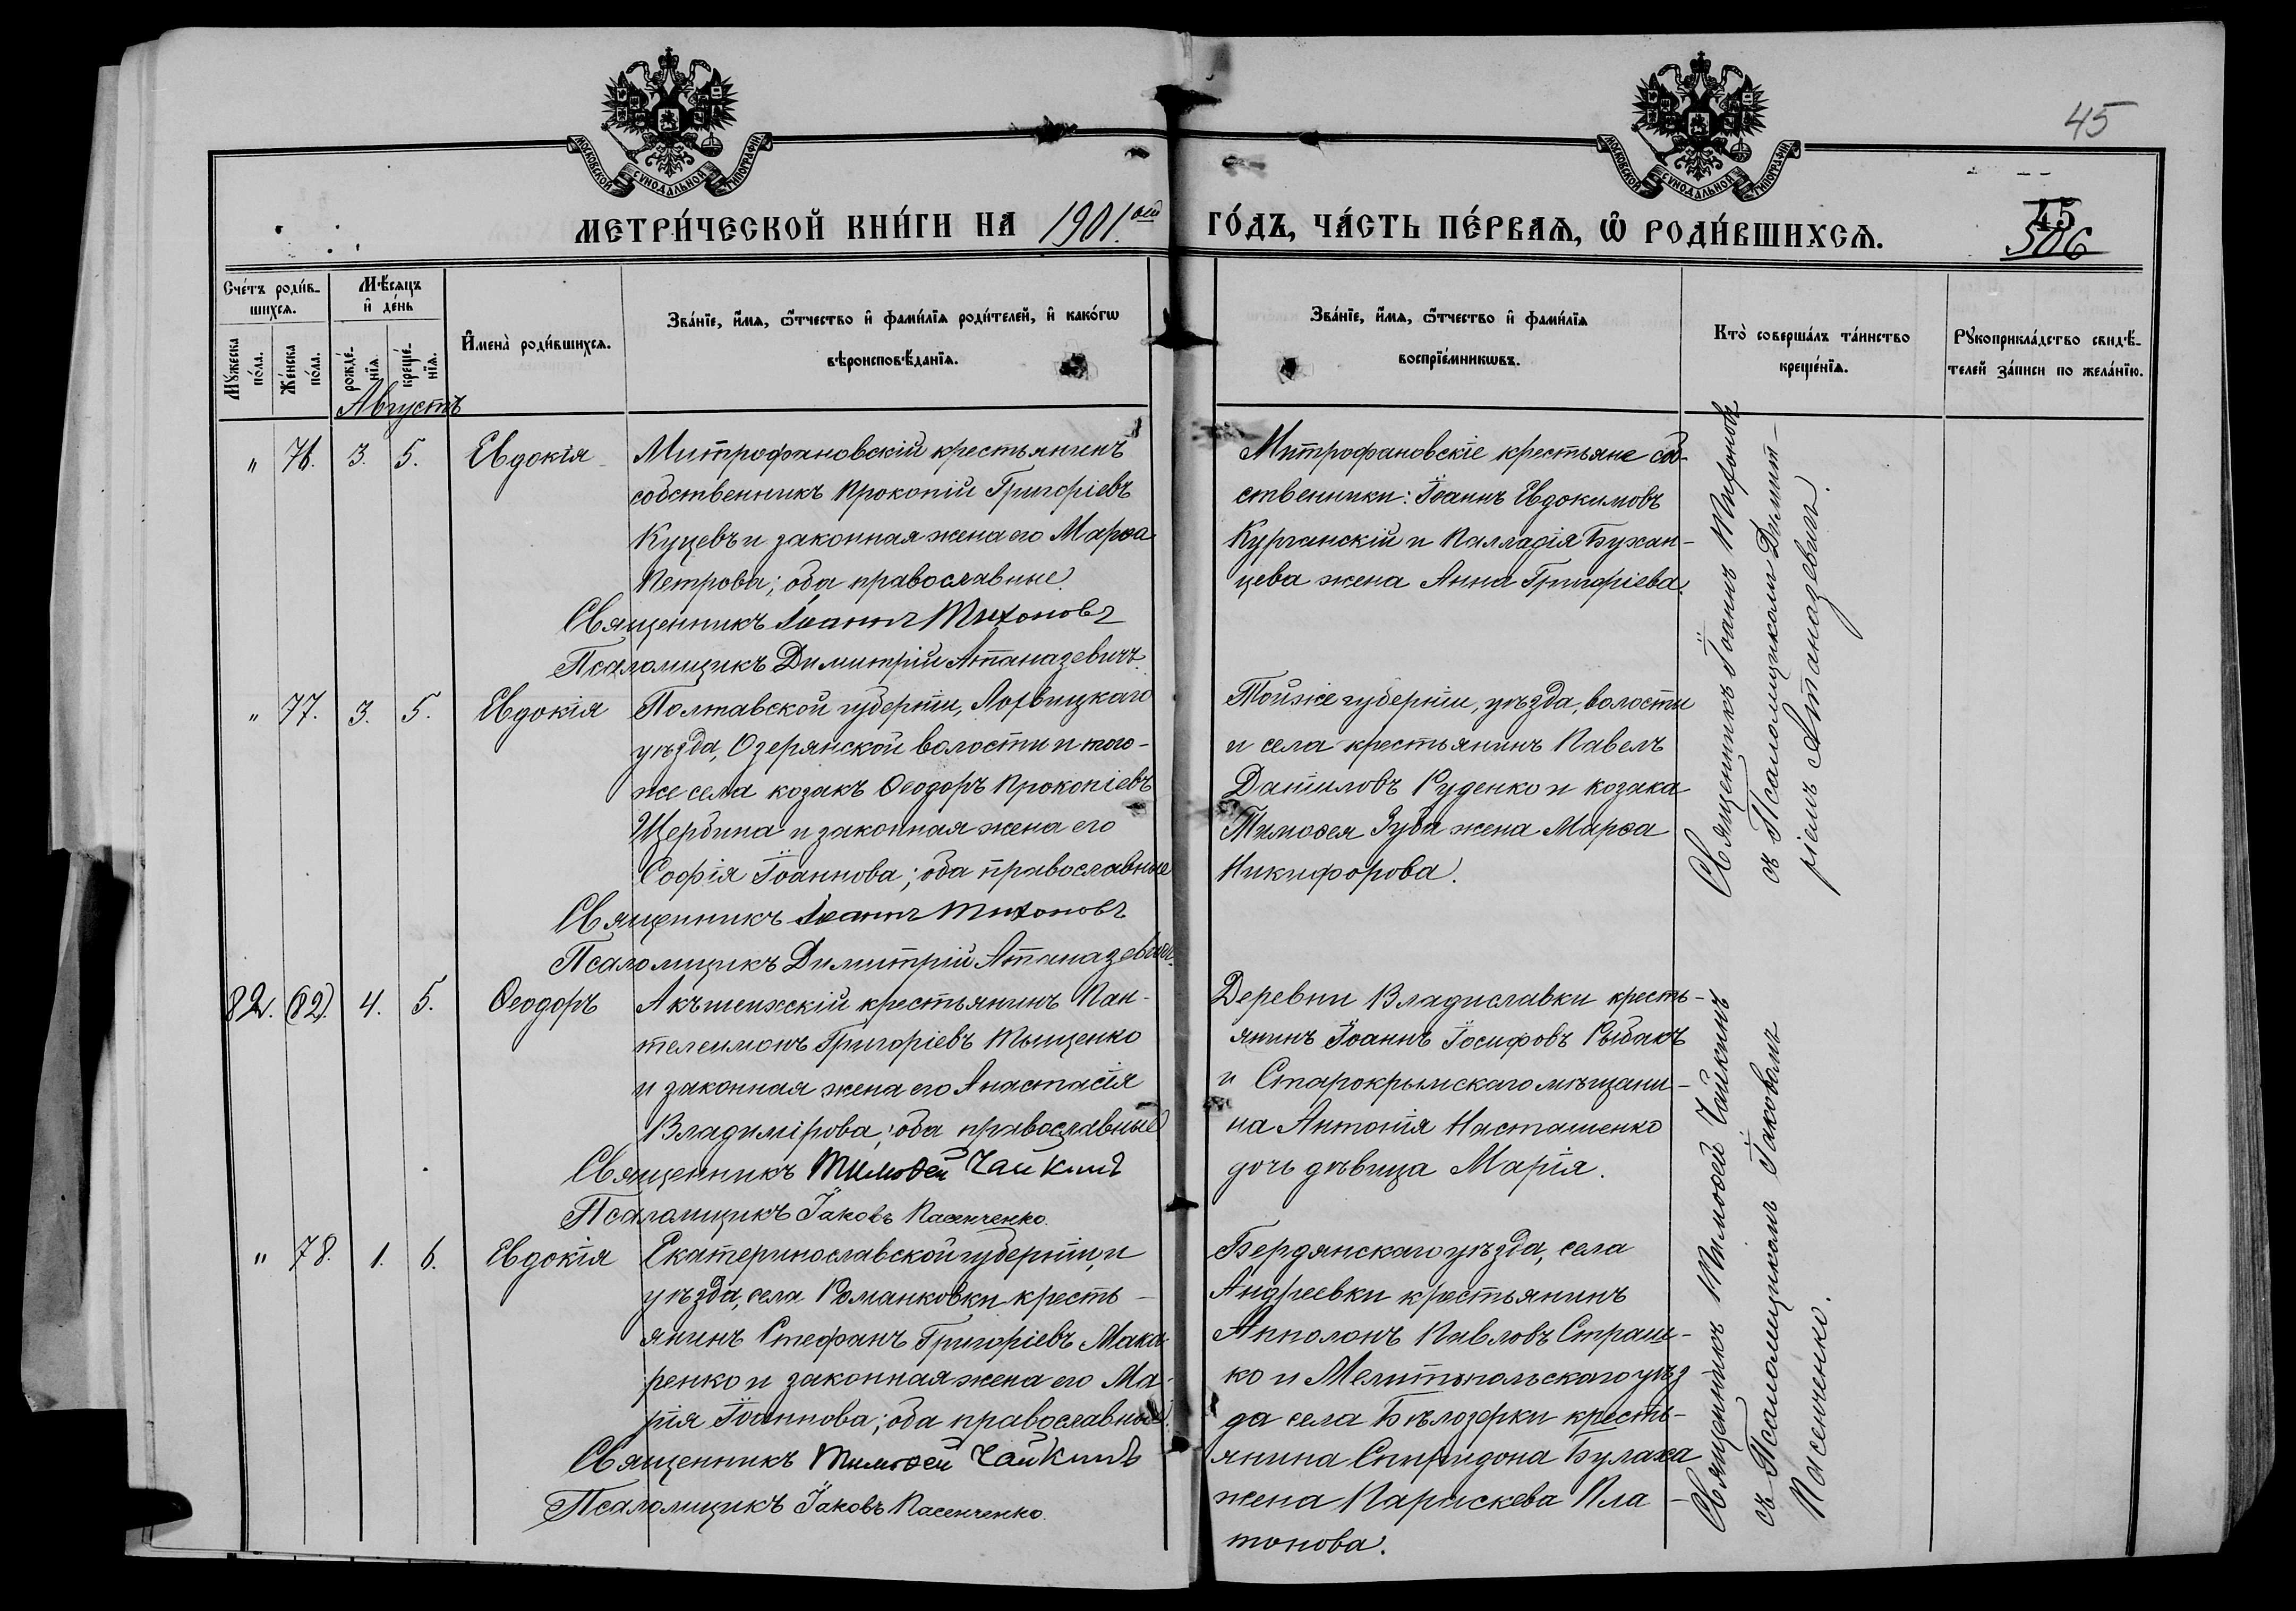 45
МОСКОВСКОЙ СѴНОДАЛЬНОЙ ТИПОГРАФІИ
МОСКОВСКОЙ СѴНОДАЛЬНОЙ ТИПОГРАФІИ
МЕТРИ́ЧЕСКОЙ КНИ́ГИ НА 1901.ый ГО́ДЪ, ЧА́СТЬ ПЕ́РВАѦ, Ѡ҆ РОДИ́ВШИХСѦ.
45
506
Сче́тъ роди́в-
шихсѧ.
Мꙋ́жеска по́ла.
Же́нска по́ла.
Мѣ́сѧцъ
и҆ де́нь
рожде́-
нїѧ.
креще́-
нїѧ.
И҆мена̀ роди́вшихсѧ.
Зва́нїе, и҆́мѧ, ѻ҆́тчество и҆ фами́лїѧ роди́телей, и҆ како́гѡ
вѣроисповѣ́данїѧ.
Зва́нїе, и҆́мѧ, ѻ҆́тчество и҆ фами́лїѧ
воспрїе́мникѡвъ.
Кто̀ соверша́лъ та́инство
креще́нїѧ.
Рꙋкоприкла́дство свидѣ́-
телей за́писи по жела́нїю.
Августъ
" 76. 3. 5. Евдокія
Митрофановскій крестьянинъ
собственникъ Прокопій Григоріевъ
Куцевъ и законная жена его Марѳа
Петрова; оба православные
Священникъ Іоаннъ Тихоновъ
Псаломщикъ Димитрій Атаназевичъ
Митрофановскіе крестьяне соб-
ственники: Іоаннъ Евдокимовъ
Курганскій и Палладія Бухан-
цева жена Анна Григоріева.
Священникъ Іоаннъ Тихоновъ
съ Псаломщикомъ Димит-
ріемъ Атаназевич.
" 77. 3. 5. Евдокія
Полтавской губерніи, Лохвицкаго
уѣзда, Озерянской волости и того-
же села козакъ Ѳеодоръ Прокопіевъ
Щербина и законная жена его
Софія Іоаннова; оба православные
Священникъ Іоаннъ Тихоновъ
Псаломщикъ Димитрій Атаназевичъ
Той же губерніи, уѣзда, волости
и села крестьянинъ Павелъ
Даниловъ Руденко и козака
Тимоѳея Зуба жена Марѳа
Никифорова.
82. (82). 4. 5. Ѳеодоръ
Акъшеихскій крестьянинъ Пан-
телеимонъ Григоріевъ Тыщенко
и законная жена его Анастасія
Владимірова; оба православные
Священникъ Тимоѳей Чайкинъ
Псаломщикъ Іаковъ Пасенченко.
Деревни Владиславки кресть-
янинъ Іоаннъ Іосифовъ Рыбакъ
и Старокрымскаго мѣщани-
на Антонія Насташенко
дочь дѣвица Марія.
Священникъ Тимоѳей Чайкинъ
съ Псаломщикомъ Іаковомъ
Пасенченко.
" 78. 1. 6. Евдокія
Екатеринославской губерніи, и
уѣзда, села Романковки кресть-
янинъ Стефанъ Григоріевъ Мака-
ренко и законная жена его Ма-
рія Іоаннова; оба православные.
Священникъ Тимоѳей Чайкинъ
Псаломщикъ Іаковъ Пасенченко.
Бердянскаго уѣзда, села
Андреевки крестьянинъ
Апполонъ Павловъ Страш-
ко и Мелитопольскаго уѣз
да села Бѣлозерки кресть-
янина Спиридона Булаха
жена Параскева Пла-
тонова.